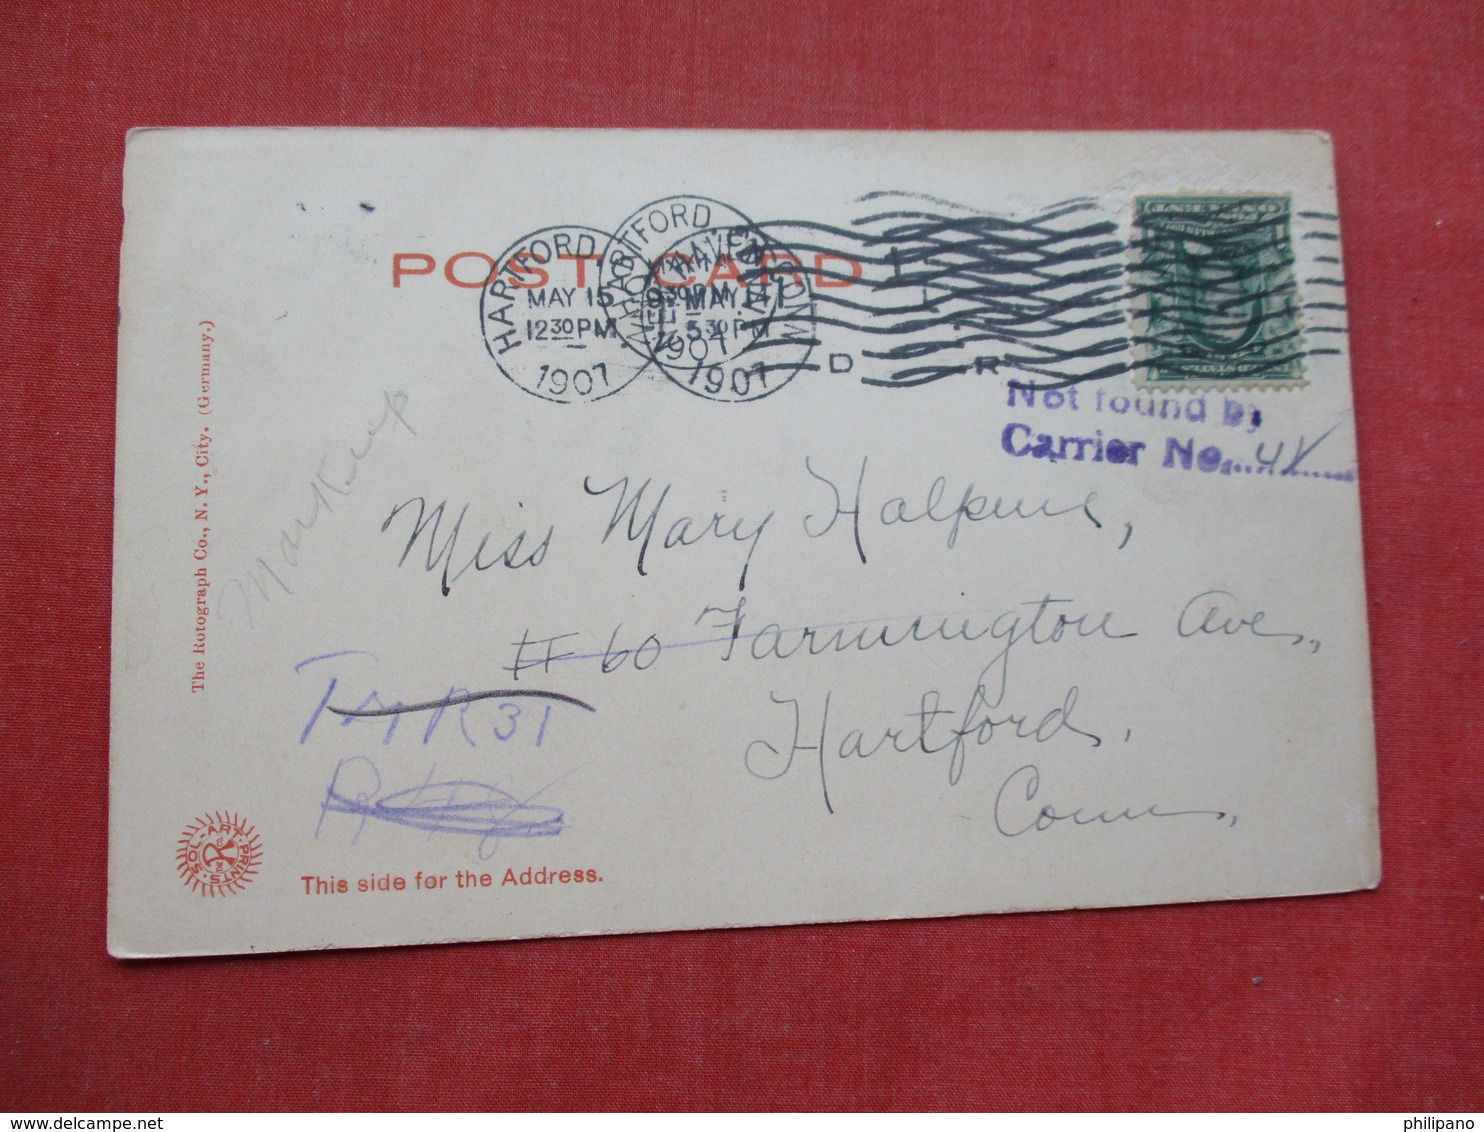 POST CARD
HARTFORD
MAY 15
12 30 PM
1907
HARTFORD
NEW HAVEN, CONN
MAY 14
5 30 PM
1907
D R
Not found by
Carrier No. 48
Miss Mary Halpine,
# 60 Farmington Ave.,
Hartford.
Conn.
T M R 31
This side for the Address.
The Rotograph Co., N. Y., City. (Germany.)
SOL-ART-PRINTS
philipano